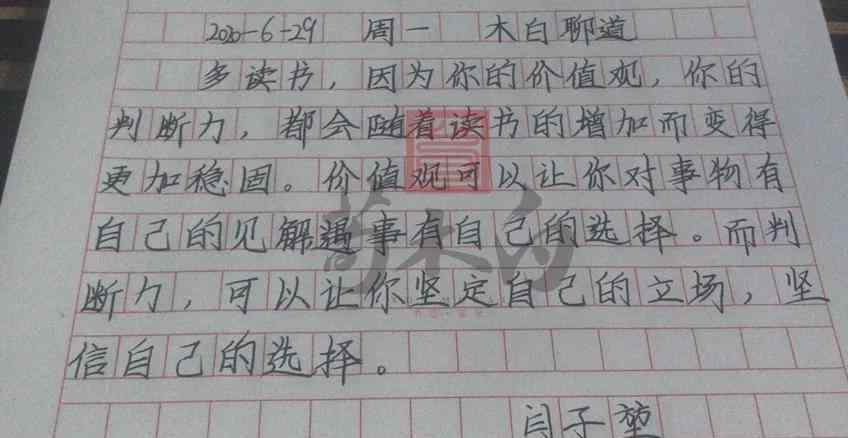 2020-6-29 周一 木白聊道
多读书，因为你的价值观，你的
判断力，都会随着读书的增加而变得
更加稳固。价值观可以让你对事物有
自己的见解遇事有自己的选择。而判
断力，可以让你坚定自己的立场，坚
信自己的选择。
闫子堃